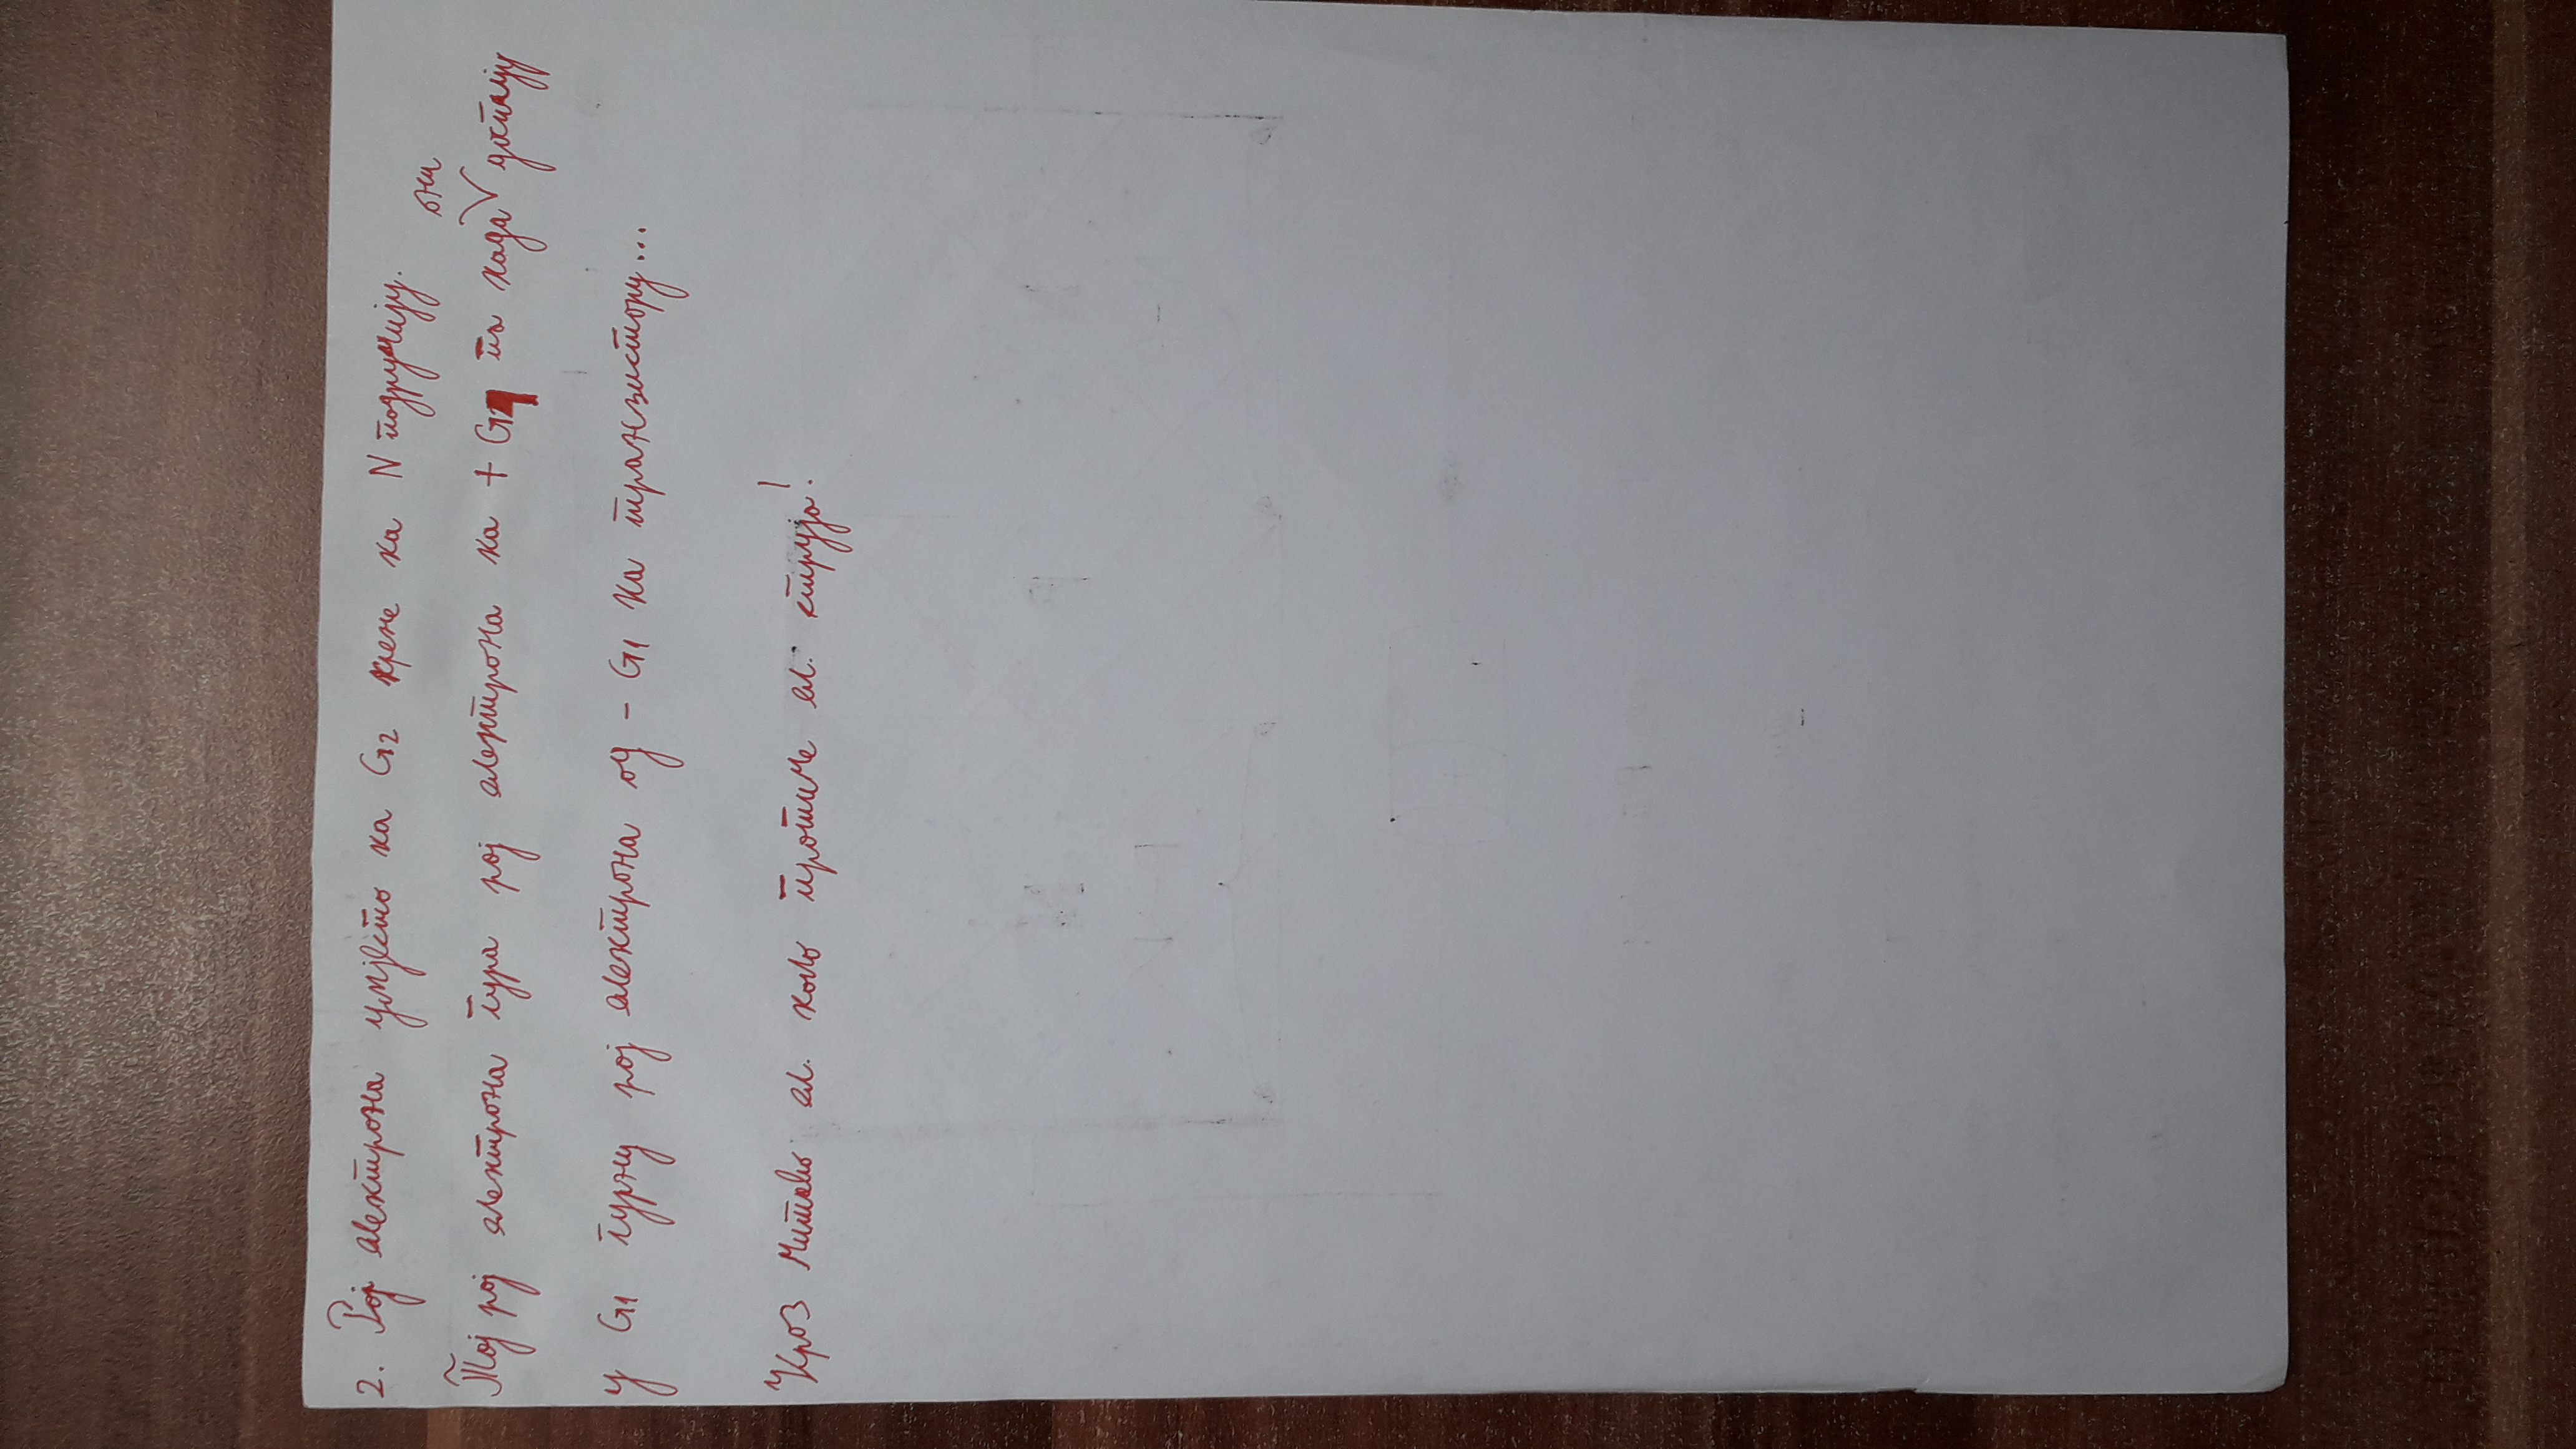 2. Рој електрона умјесто ка G2 крене ка N подручију.
Тој рој електрона гура рој електрона ка + G1 па када они доспију
у G1 гурну рој електрона од - G1 ка транзистору...
Кроз читаво ел. коло протиче ел. струја!